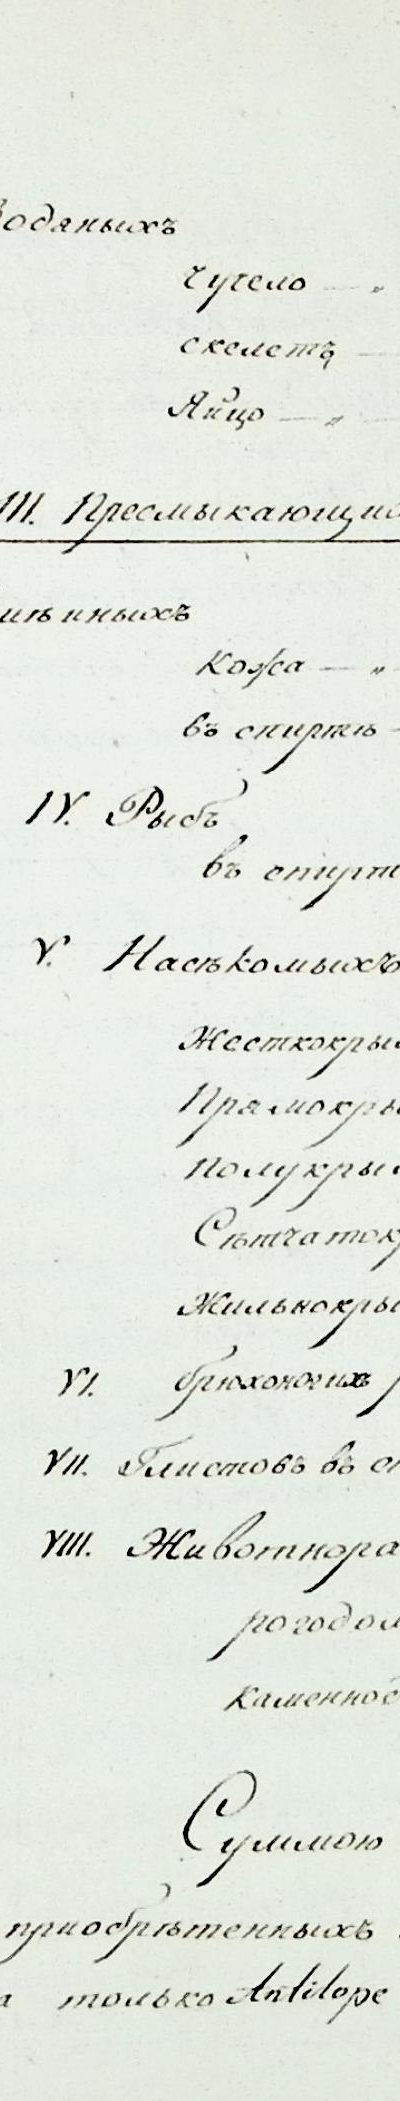 Водяныхъ
Чучело — „
скелетъ —
Яйцо — „ —
III. Пресмыкающихс
мѣиныхъ
кожа — „ —
въ спиртѣ —
IV. Рыбъ
въ спирт
V. Насѣкомыхъ
Жесткокры
Прямокры
Полукрыл
Сѣтчаток
Жильнокры
VI. брюхоногих р
VII. Глистовъ въ сп
VIII. Животнора
рогодом
каменно
Суммою
приобрѣтенныхъ
а только Antilope